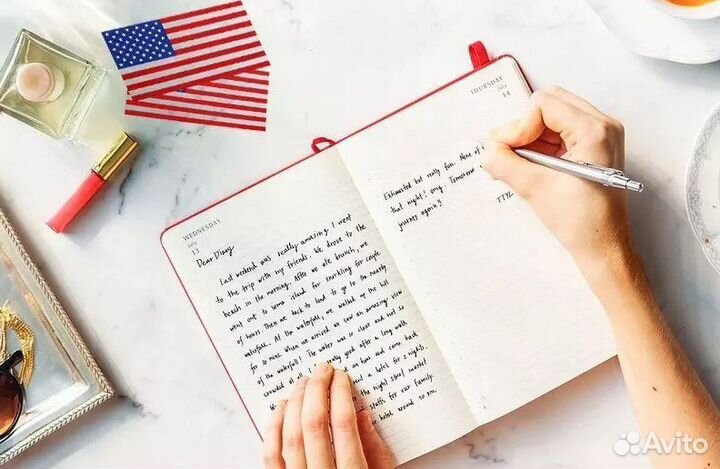 WEDNESDAY
July
13
Dear Diary
Last weekend was really amazing. I went
to the trip with my friends. We drove to the
beach in the morning. After we ate brunch, we
went out to some island for snorkling for couple
of hours. Then we back to land to go to the nearby
waterfall. At the waterfall, we walked up the hill
for 30 mins. When we arrived we saw an amazing view
of the waterfall! The water was clear and not so
crowded at all good after a long walk
bus and came back
a hotel for 2 nights.
to the night market
stuffs for our family.
hotel around 10 pm.
THURSDAY
July
14
Exhausted but really fun. None of
that night! omg. Tomorrow
journey again!!
TTYL
Avito